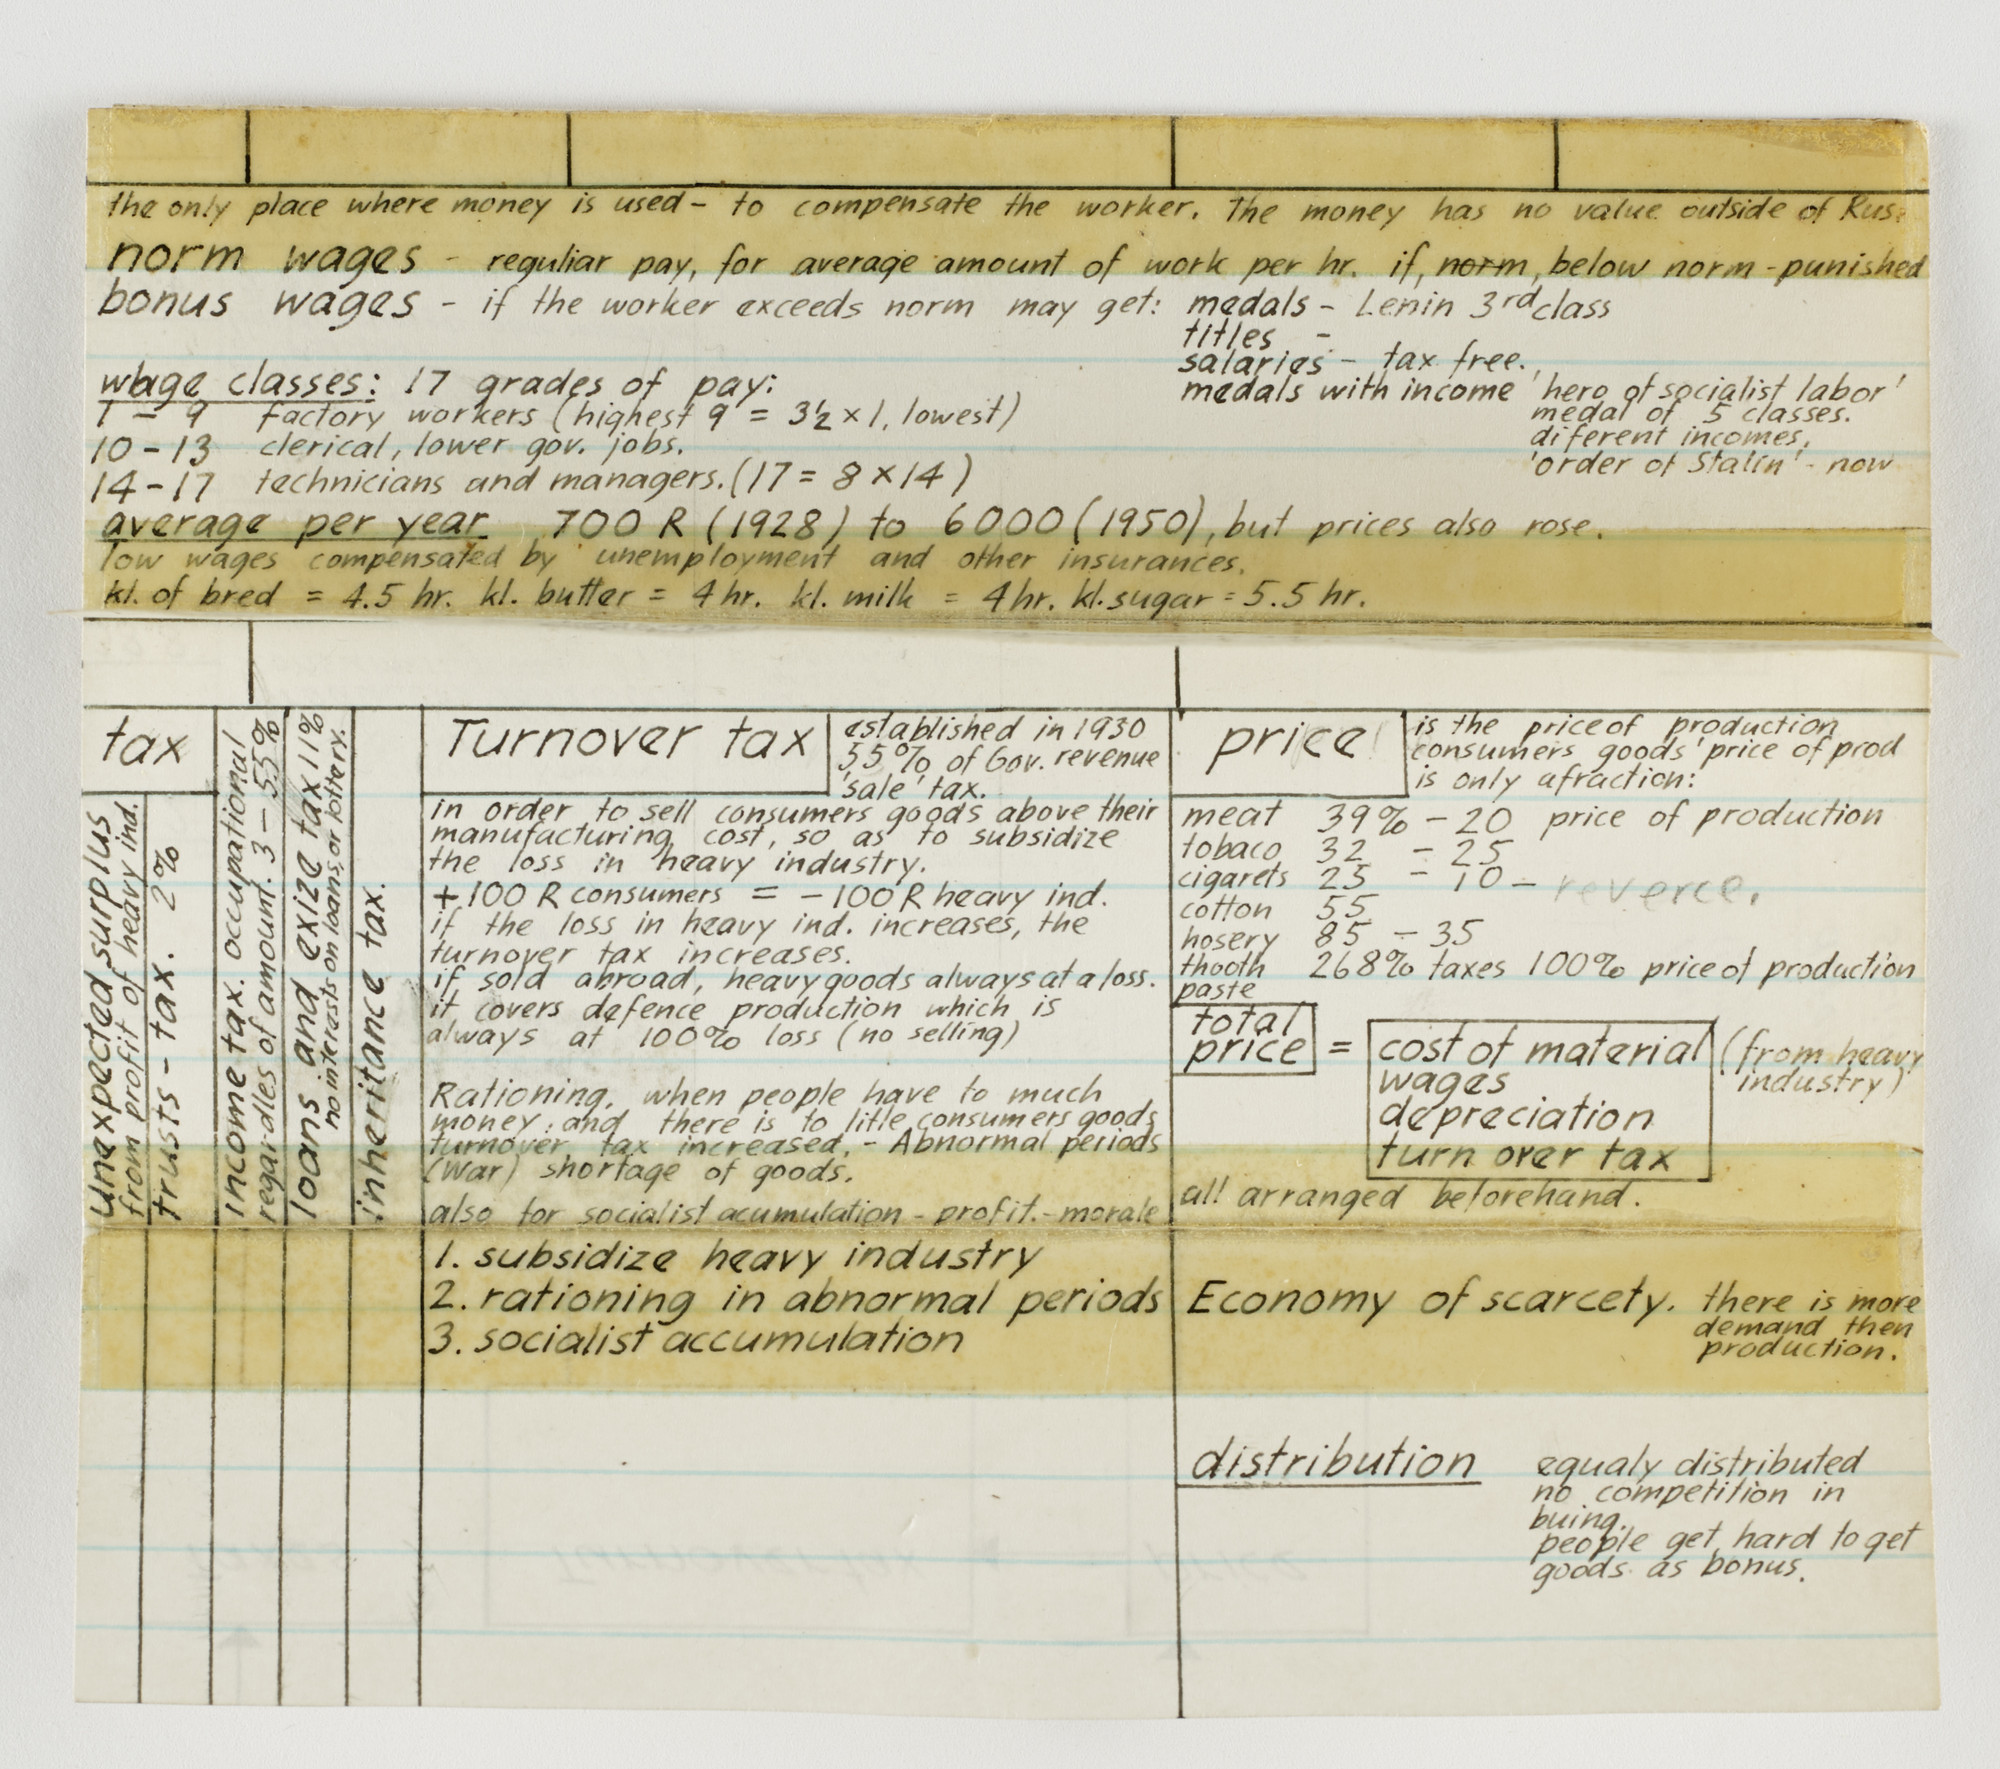 the only place where money is used - to compensate the worker. The money has no value outside of Rus
norm wages - reguliar pay, for average amount of work per hr. if, norm, below norm - punished
bonus wages - if the worker exceeds norm may get: medals - Lenin 3rd class
titles -
salaries - tax free.
medals with income 'hero of socialist labor'
medal of 5 classes.
diferent incomes,
'order of Stalin' - now
wage classes: 17 grades of pay:
1 - 9 factory workers (highest 9 = 3½ x 1, lowest)
10 - 13 clerical, lower gov. jobs.
14 - 17 technicians and managers. (17 = 8 x 14)
average per year 700 R (1928) to 6000 (1950), but prices also rose.
low wages compensated by unemployment and other insurances.
kl. of bred = 4.5 hr. kl. butter = 4 hr. kl. milk = 4 hr. kl. sugar = 5.5 hr.
tax
unexpected surplus
from profit of heavy ind.
trusts - tax. 2%
income tax. occupational
regardles of amount. 3 - 55%
loans and exize tax 11%
no interests on loans, or lottery.
inheritance tax.
Turnover tax
established in 1930
55% of Gov. revenue
'sale' tax.
in order to sell consumers goods above their
manufacturing cost, so as to subsidize
the loss in heavy industry.
+ 100 R consumers = - 100 R heavy ind.
if the loss in heavy ind. increases, the
turnover tax increases.
if sold abroad, heavy goods always at a loss.
it covers defence production which is
always at 100% loss (no selling)
Rationing. when people have to much
money, and there is to litle consumers goods
turnover tax increased. - Abnormal periods
(war) shortage of goods.
also for socialist acumulation - profit. - morale
1. subsidize heavy industry
2. rationing in abnormal periods
3. socialist accumulation
price
is the price of production
consumers goods' price of prod
is only a fraction:
meat 39% - 20 price of production
tobaco 32 - 25
cigarets 25 - 10 - reverce.
cotton 55
hosery 85 - 35
thooth 268% taxes 100% price of production
paste
total
price = cost of material (from heavy
industry)
wages
depreciation
turn over tax
all arranged beforehand.
Economy of scarcety. there is more
demand then
production.
distribution equaly distributed
no competition in
buing.
people get hard to get
goods as bonus.